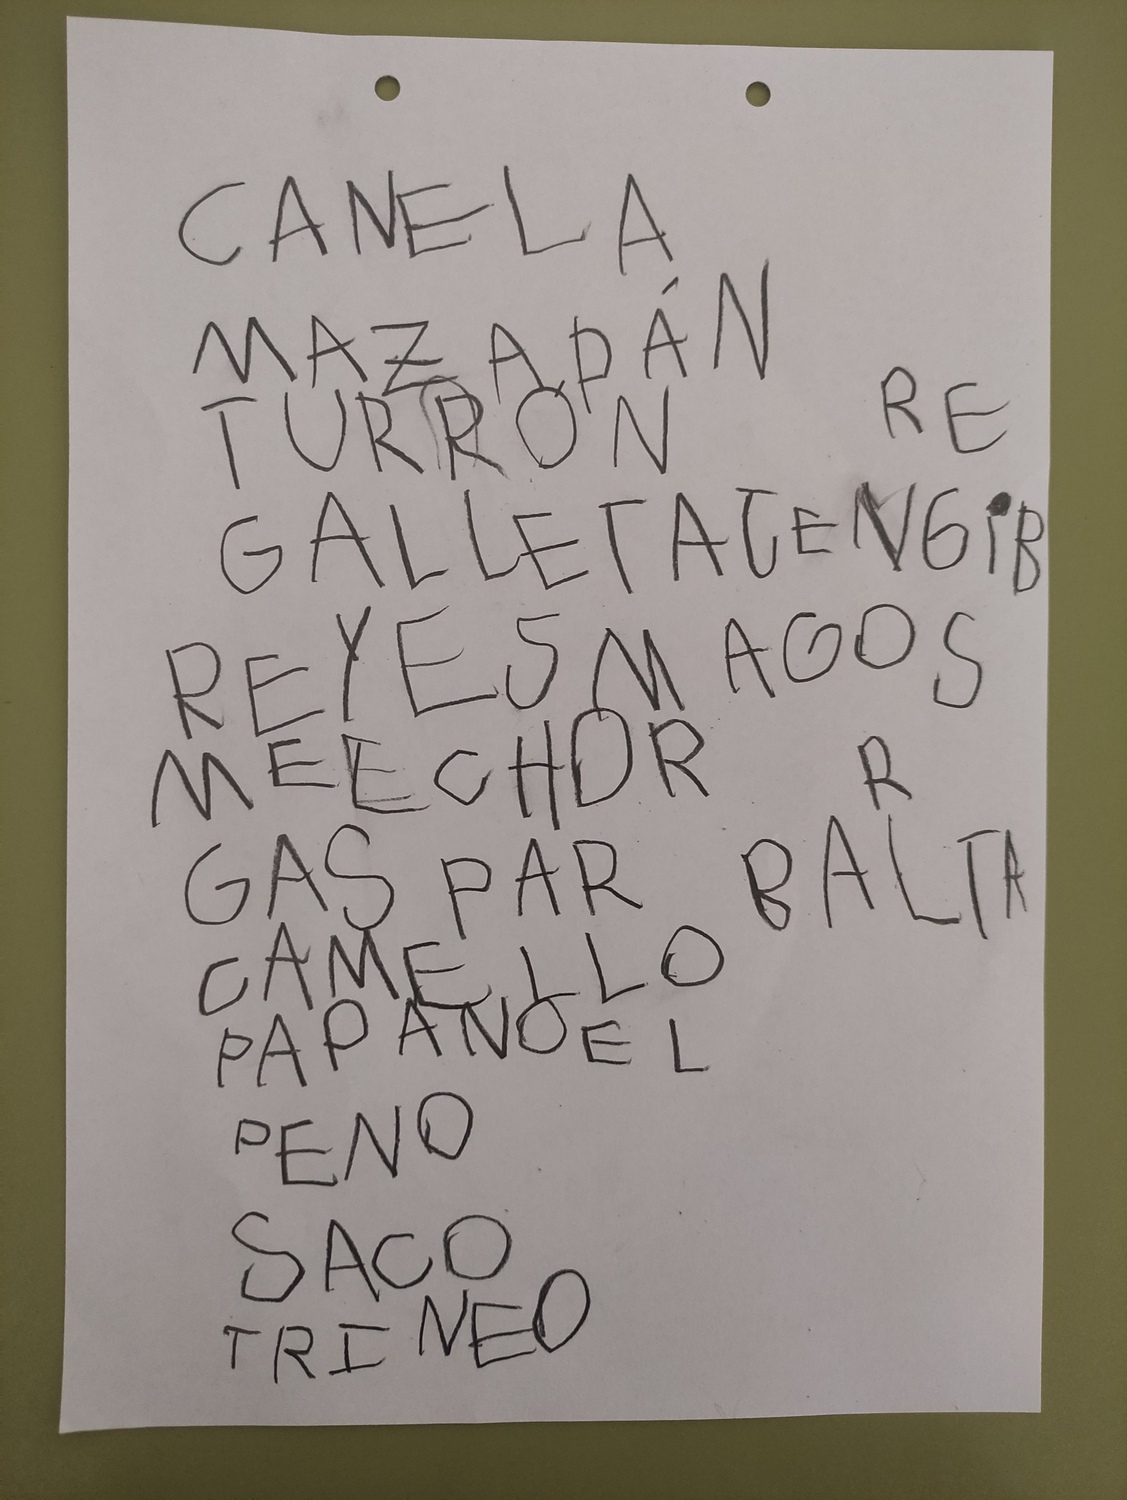 CANELA
MAZAPÁN
TURRON
RE
GALLETAJENGIB
REYESMAGOS
MEECHOR
R
GASPAR BALTA
CAMELLO
PAPANOEL
PENO
SACO
TRINEO